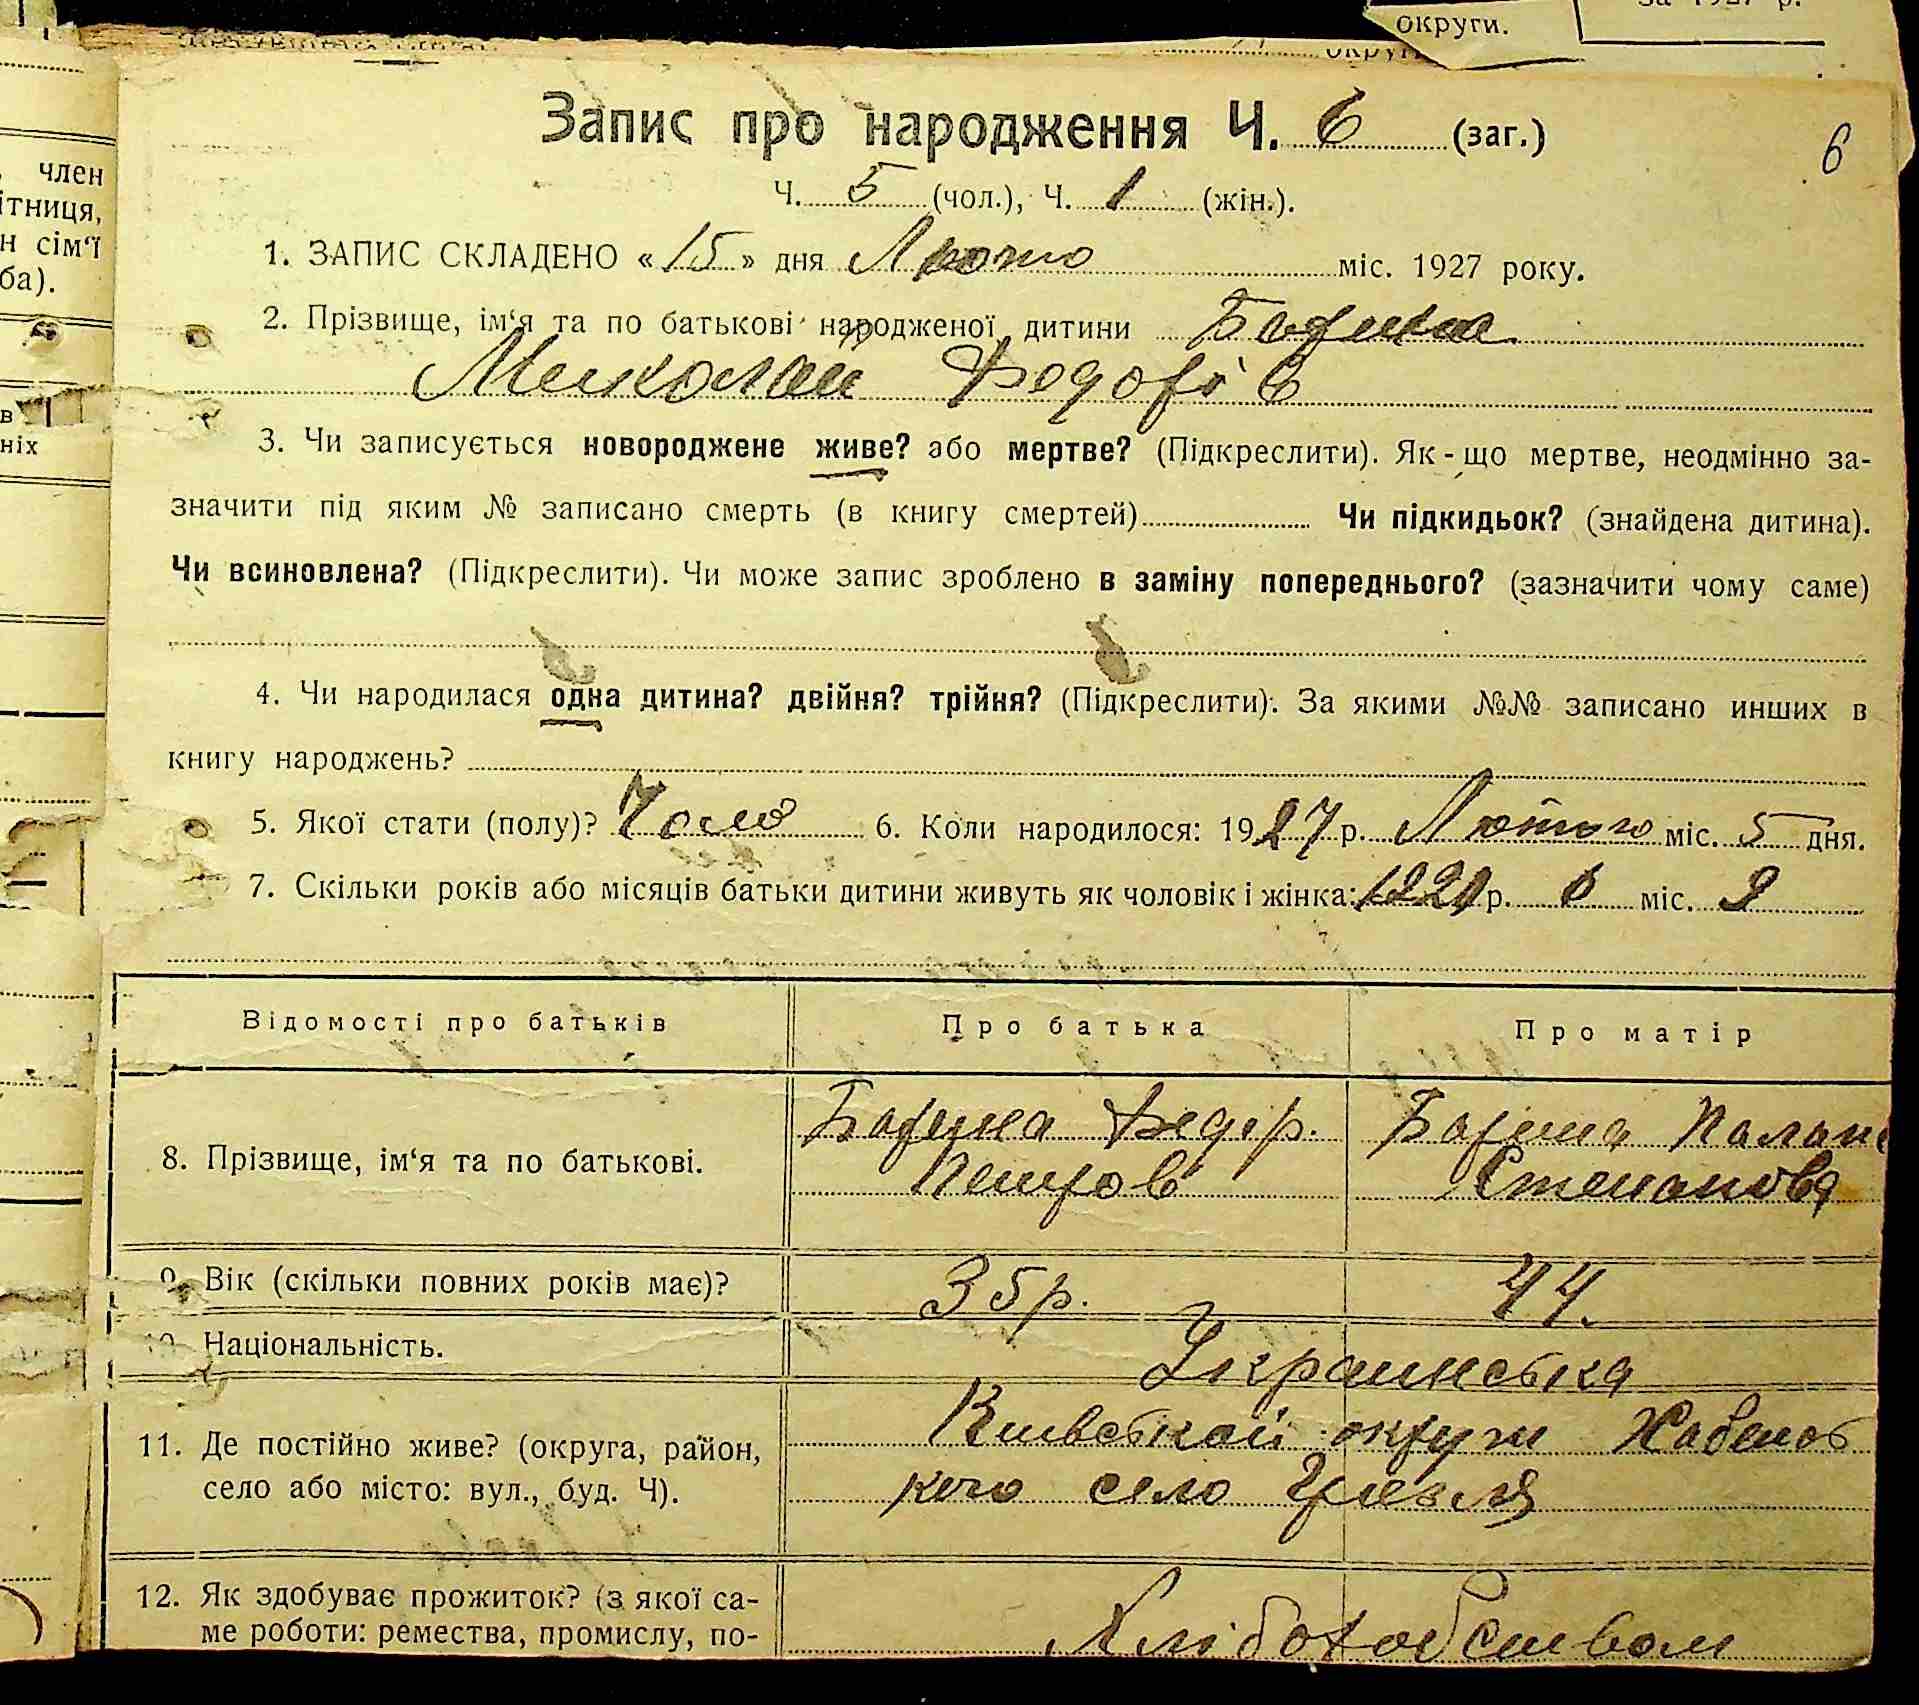 округи.
за 1927 р.
член
ітниця,
н сім‘ї
ба).
в
ніх
Запис про народження Ч. 6 (заг.)
6
Ч. 5 (чол.), Ч. 1 (жін.).
1. ЗАПИС СКЛАДЕНО « 15 » дня Лютого міс. 1927 року.
2. Прізвище, ім‘я та по батькові народженої дитини
Миколай Федорів
3. Чи записується новороджене живе? або мертве? (Підкреслити). Як - що мертве, неодмінно за-
значити під яким № записано смерть (в книгу смертей) Чи підкидьок? (знайдена дитина).
Чи всиновлена? (Підкреслити). Чи може запис зроблено в заміну попереднього? (зазначити чому саме)
4. Чи народилася одна дитина? двійня? трійня? (Підкреслити). За якими №№ записано инших в
книгу народжень?
5. Якої стати (полу)? Чоло 6. Коли народилося: 1927 р. Лютого міс. 5 дня.
7. Скільки років або місяців батьки дитини живуть як чоловік і жінка: р. міс.
Відомості про батьків Про батька Про матір
8. Прізвище, ім‘я та по батькові.
Федір.
Петров Степанова
9. Вік (скільки повних років має)? 35 р. 44.
Національність. Українська
11. Де постійно живе? (округа, район, Київської округи Хабенсь
село або місто: вул., буд. Ч). кого село Грезля
12. Як здобуває прожиток? (з якої са-
ме роботи: ремества, промислу, по- Хліборобством